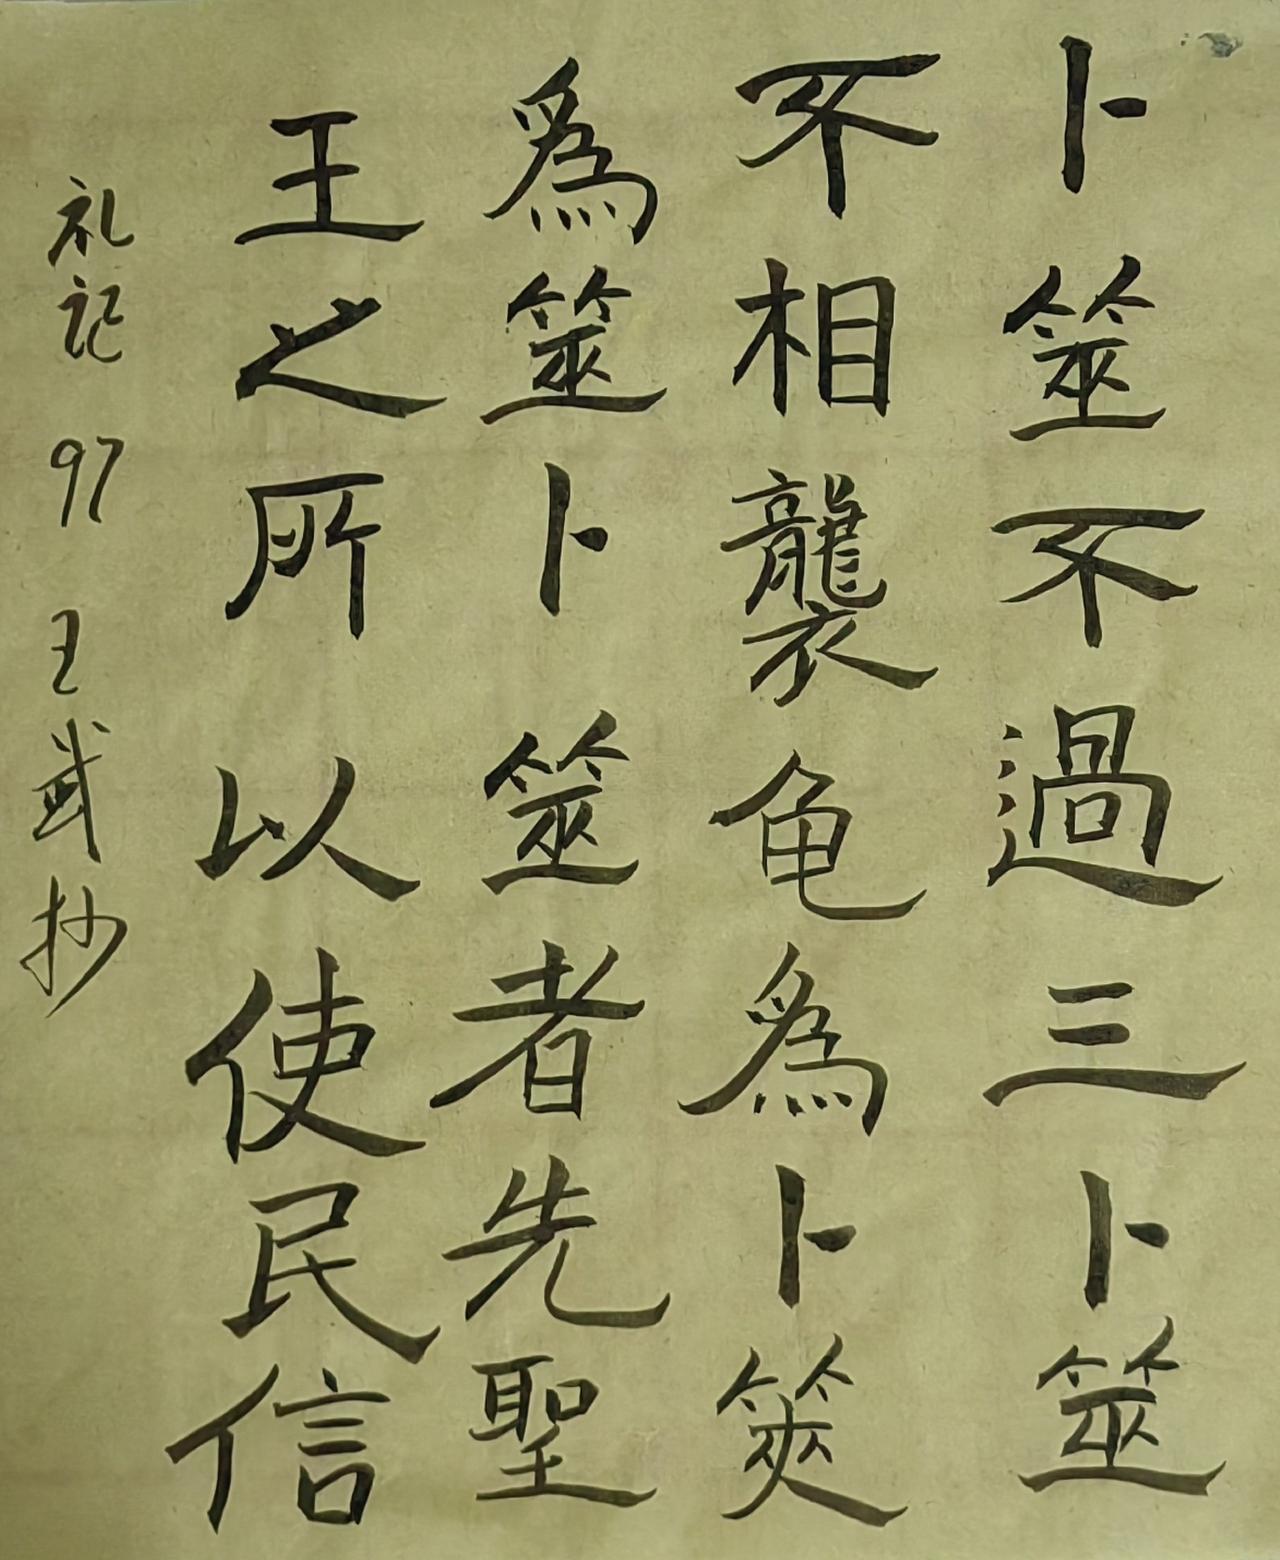 卜筮不過三卜筮
不相襲龟爲卜筴
爲筮卜筮者先聖
王之所以使民信
礼记 97 王武抄